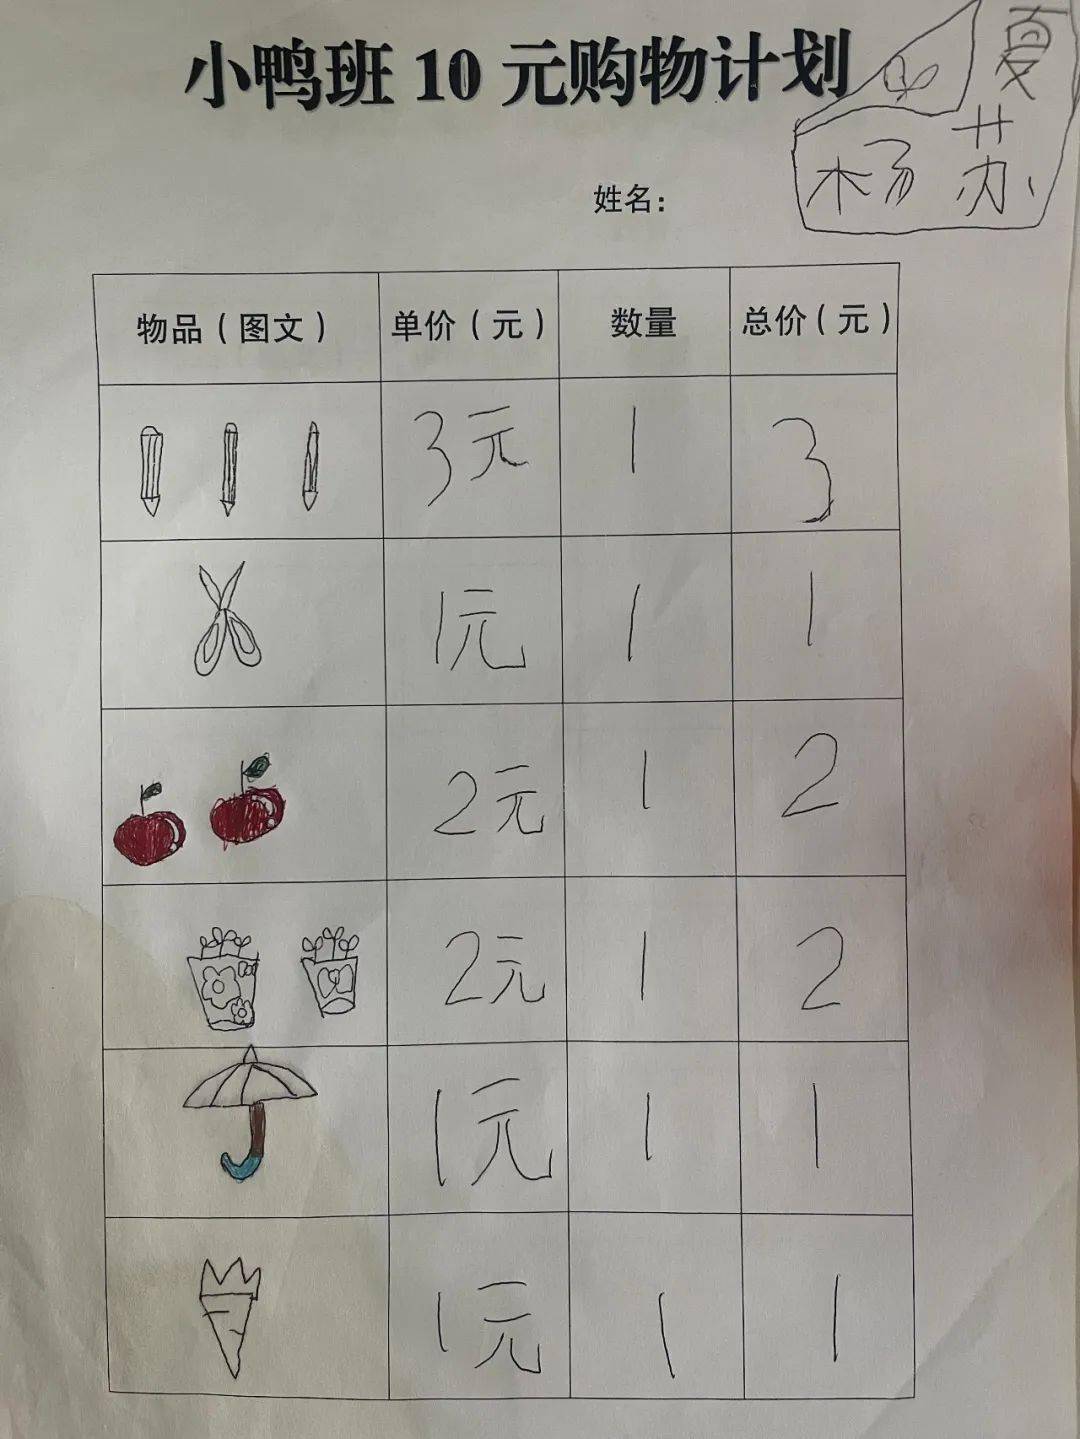 小鸭班10元购物计划
夏
杨 苏
姓名：
物品（图文） 单价（元） 数量 总价（元）
3元 1 3
1元 1 1
2元 1 2
2元 1 2
1元 1 1
1元 1 1